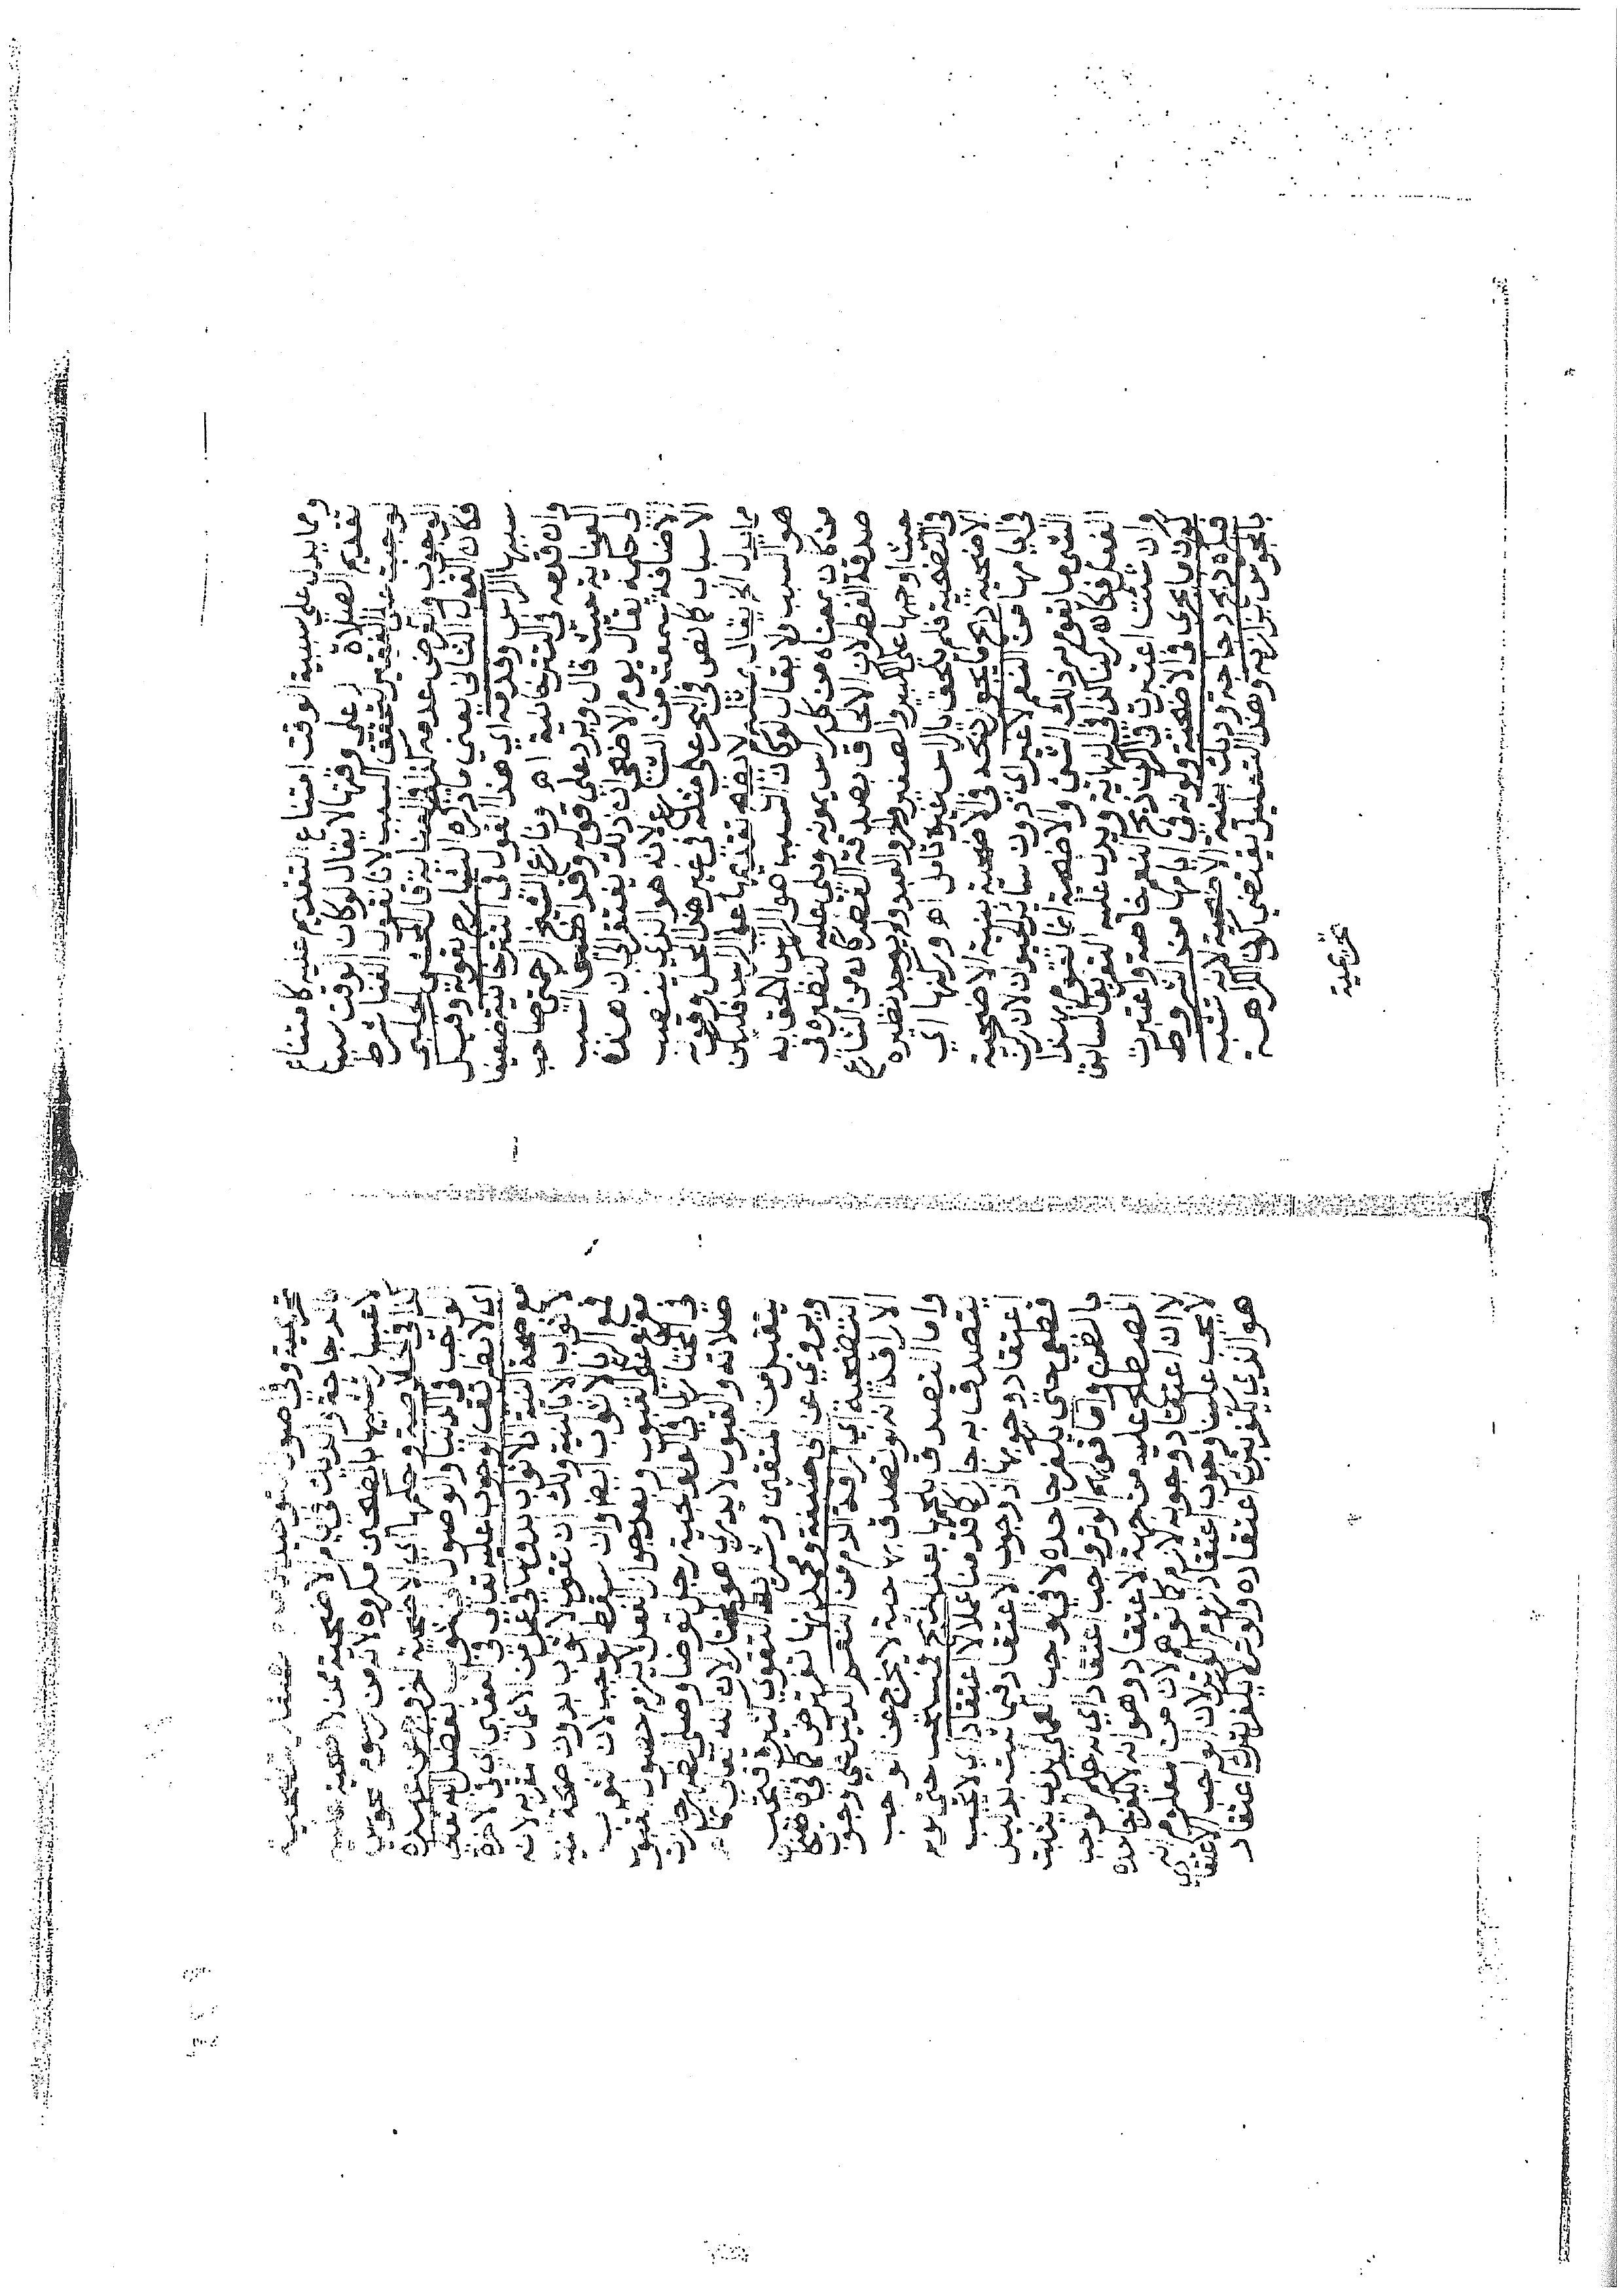 ومما يدل على سببية الوقت امتناع التقديم عليه كامتناع
تقديم الصلاة على وقتها لا يقال لو كان الوقت سببا
لوجبت على الفقير لتحقق السبب لانا نقول الغنا شرط
الوجوب والفرض عدمه كذا فى العناية قال المحشى الحلبى
فكان القول الثانى يعنى ما ذكره الشارح بقوله وقيل
سببها الراس وقدمه اى هذا القول فى التترخانية ضعيفا
وان قدمه فى التترخانية اه ونازع الشيخ الرحمتى صاحب
العناية حيث قال ويرد على قوله وقد اضيف السبب
فى حكمه يقال يوم الاضحى ان ذلك يفتقر الى ان هذه
الاضافة سمعت من الشارع لانه هو الذى ينصب
الاسباب كما نص فى البحر على مثله فى غير هذا المحل وقوله
مما يدل الخ يقال بمثله لا يصح تقديمها على الراس فليكن
هو السبب ولا يقال لو كان السبب هو الراس لالحق به
من كان بمعناه من كل راس يمونه ويلى عليه كنظيره فى
صدقة الفطر لان الالحاق بصدقة الفطر كان من الشارع
حيث اوجبها على الكبير والصغير والحر والعبد ولم يوجد نظيره
فى التضحية فلم يلحق بالراس غيره تامل اه وركنها اى
الاضحية ذبح ما يجوز ذبحه فى الاضحية بنية الاضحية
فى ايامها من النعم لا غير اى دون سائر الحيوان لان ركن
الشئ ما يقوم به ذلك الشئ والاضحية انما تقوم بهذا
الفعل فكان ركنا كذا فى النهاية ويرد عليه التعريف السابق
وان شئت اعتبرت فى الركن ذبح النعم خاصة واعتبرت
كون ما يجزى فى الاضحية وكونه فى ايامها من الشروط
فكره ذبح دجاجة وديك بنية الاضحية لانه تشبه
بالمجوس بزازيه وهذا التعليل يقتضى كون الكراهة
تحريمية
تحريمية وفى اصول التوحيد
بالدجاجة والديك فى ايام الاضحية ممن لا اضحية عليه
لاعساره تشبيها بالمضحى مكروه لانه من رسوم المجوس
كذا فى الخلاصة وحكمها اى الاضحية الخروج عن عهدة
الواجب فى الدنيا والوصول الى الثواب بفضل الله تعالى
اى لا بطريق الوجوب عليه تعالى فى العقبى اى فى الاخرة
مع صحة النية اذ لا ثواب بدونها فى عمل من الاعمال
لا ثواب الا بالنية ولك ان تقول لا ثواب بدون صحة النية
فمع الريا لا ثواب ايضا وان سقط الواجب لان الثواب
مفرع على القبول وبعد جواز الفعل لا يلزم حصول القبول
فى المختار كما فى الولوالجية رجل توضا وصلى الظهر جازت
صلاته والقبول لا يدرى هو المختار لان الله تعالى قال انما
يتقبل الله من المتقين وشرائط التقوى كثيرة فتجب
ويروى عن ابى حنيفة ومحمد انها تفترض كما فى قاضيخان
التضحية اى اراقة الدم من النعم الدليل على وجوب
الاراقة انه لو تصدق بها حية لا يخرج عن الواجب
واما التصدق بلحمها بعد الذبح فمستحب حتى لو لم
يتصدق به جاز كما قدمنا عملا لا اعتقادا اى لا تجب
اعتقاد وجوبها اذ وجوب الاعتقاد فيما ثبت بدليل
قطعى حتى يكفر جاحده لا فى الواجب العملى الذى يثبت
بالظن واما قولهم الوتر واجب اعتقادا اى انه على الواجب
المصطلح عليه من جهة الاعتقاد وهو انه لا يكفر جاحده
لا ان اعتقاد وجوبه لازم كما توهم لان من المعلوم انه
لا يجب علينا وجوب اعتقاد لزوم الوتر لان الواجب الاعتقادى
هو الذى يكفر بترك اعتقاده والوتر لا يكفر بترك اعتقاد